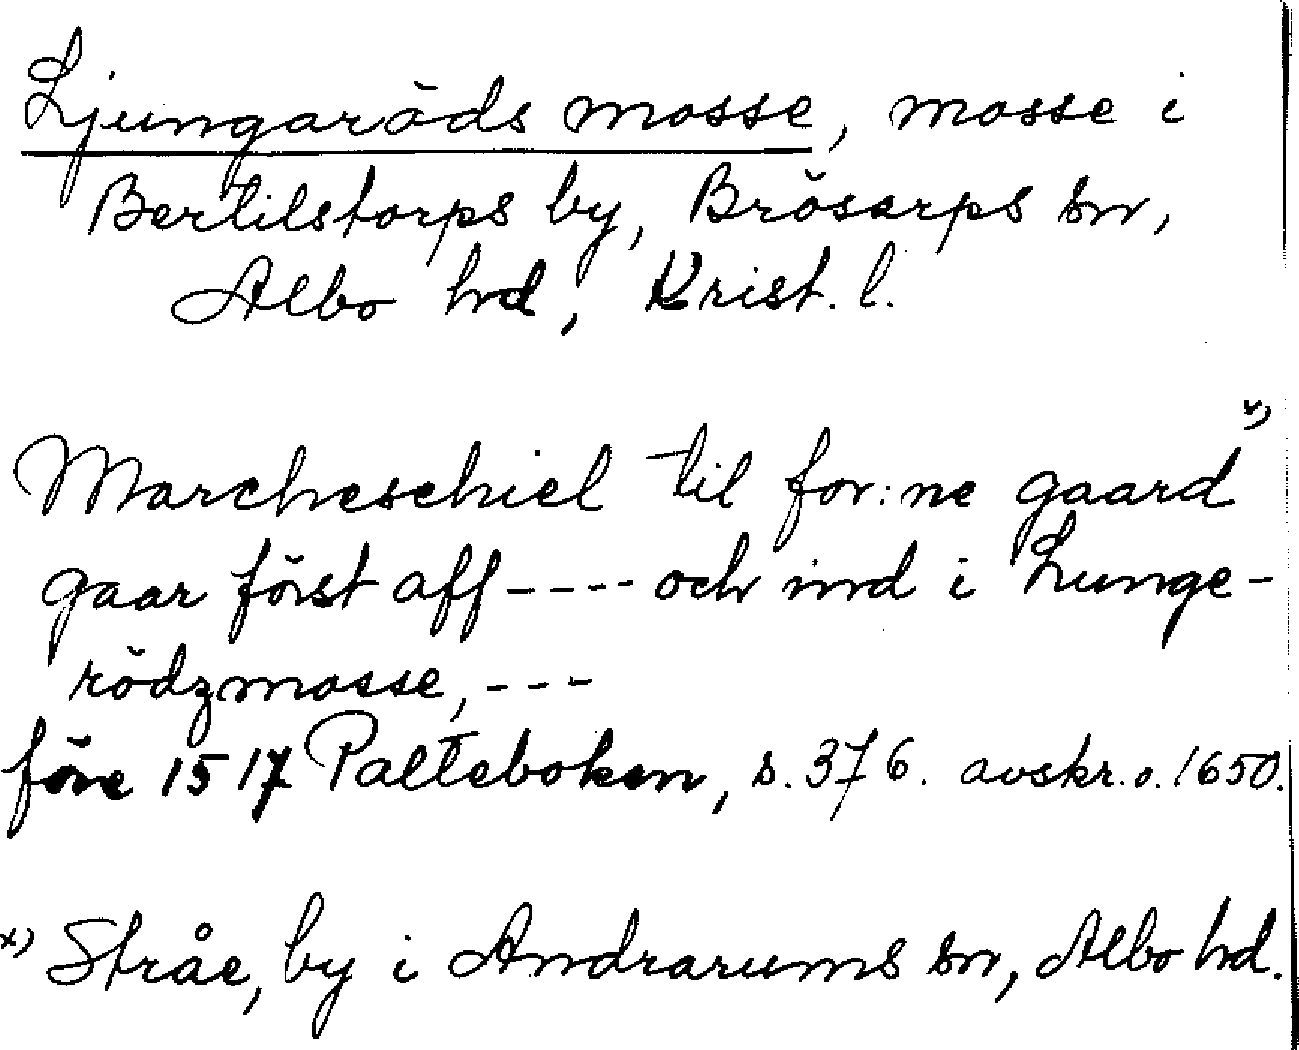 Ljungaröds mosse, mosse i
Bertilstorps by, Brösarps sn,
Albo hd, Krist. l.
Marcheschiel til for:ne gaard x)
gaar först aff ---- och ind i Lunge-
rödzmosse, ---
före 1517 Palteboken, s. 376. avskr. o. 1650.
x) Stråe, by i Andrarums sn, Albo hd.